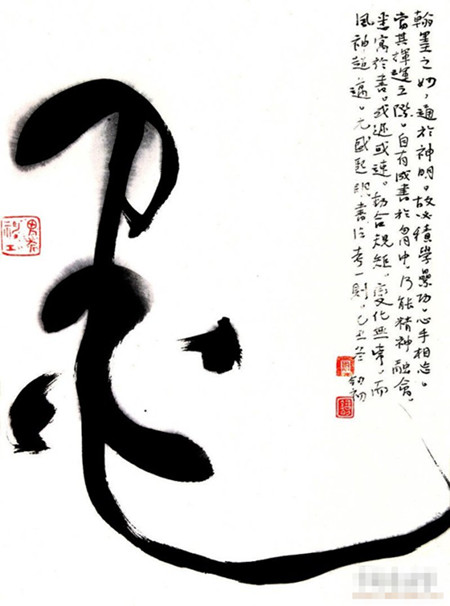 翰墨之妙，通於神明。故必積學纍功。心手相忘。
當其揮運之際。自有成書於胸中，乃能精神融會。
悉寓於書。或遲或速。動合規矩。變化無常。而
風神超逸。元盛熙明書法考一則。己丑冬